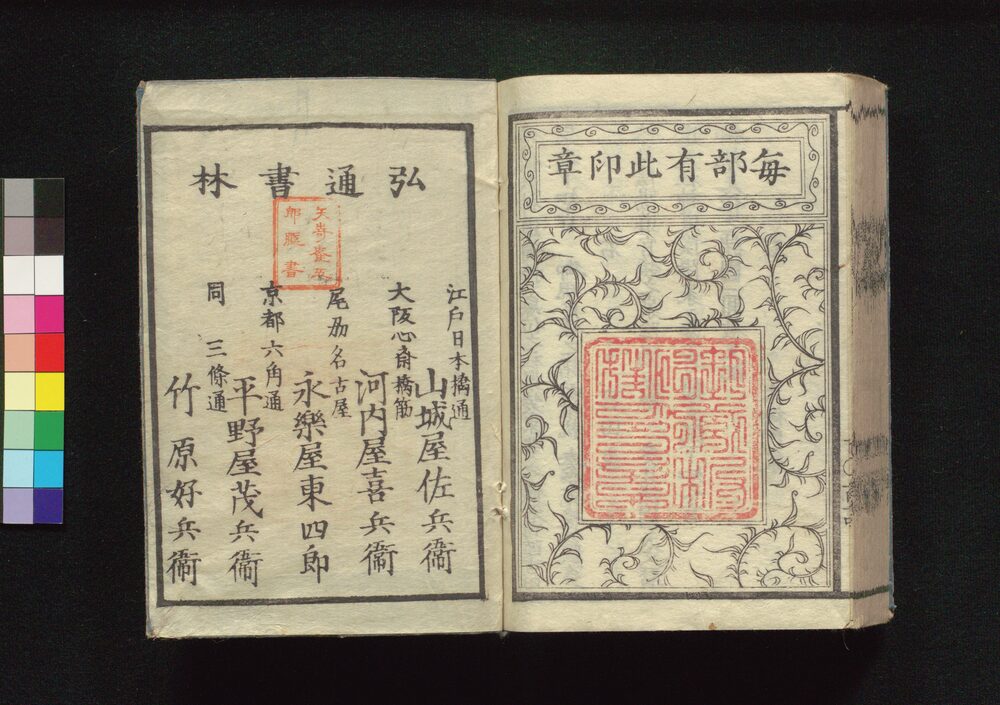 每部有此印章
弘通書林
江戸日本橋通
山城屋佐兵衞
大阪心斎橋筋
河内屋喜兵衞
尾州名古屋
永樂屋東四郎
京都六角通
平野屋茂兵衞
同三條通
竹原好兵衞